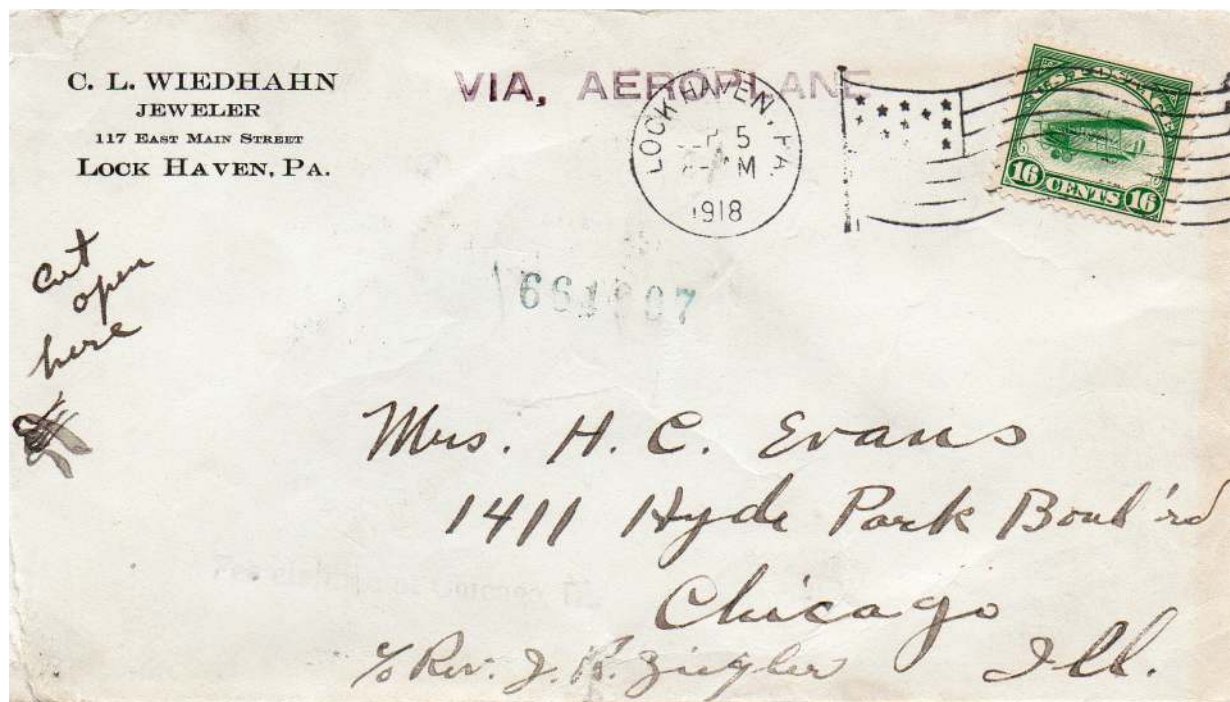 C. L. WIEDHAHN
JEWELER
117 EAST MAIN STREET
LOCK HAVEN, PA.
VIA, AEROPLANE
LOCK HAVEN, PA
5
M
1918
U.S. POSTAGE
16 CENTS 16
cut
open
here
Mrs. H. C. Evans
1411 Hyde Park Boul'rd
Chicago
Ill.
c/o Rev. J. K. Ziegler